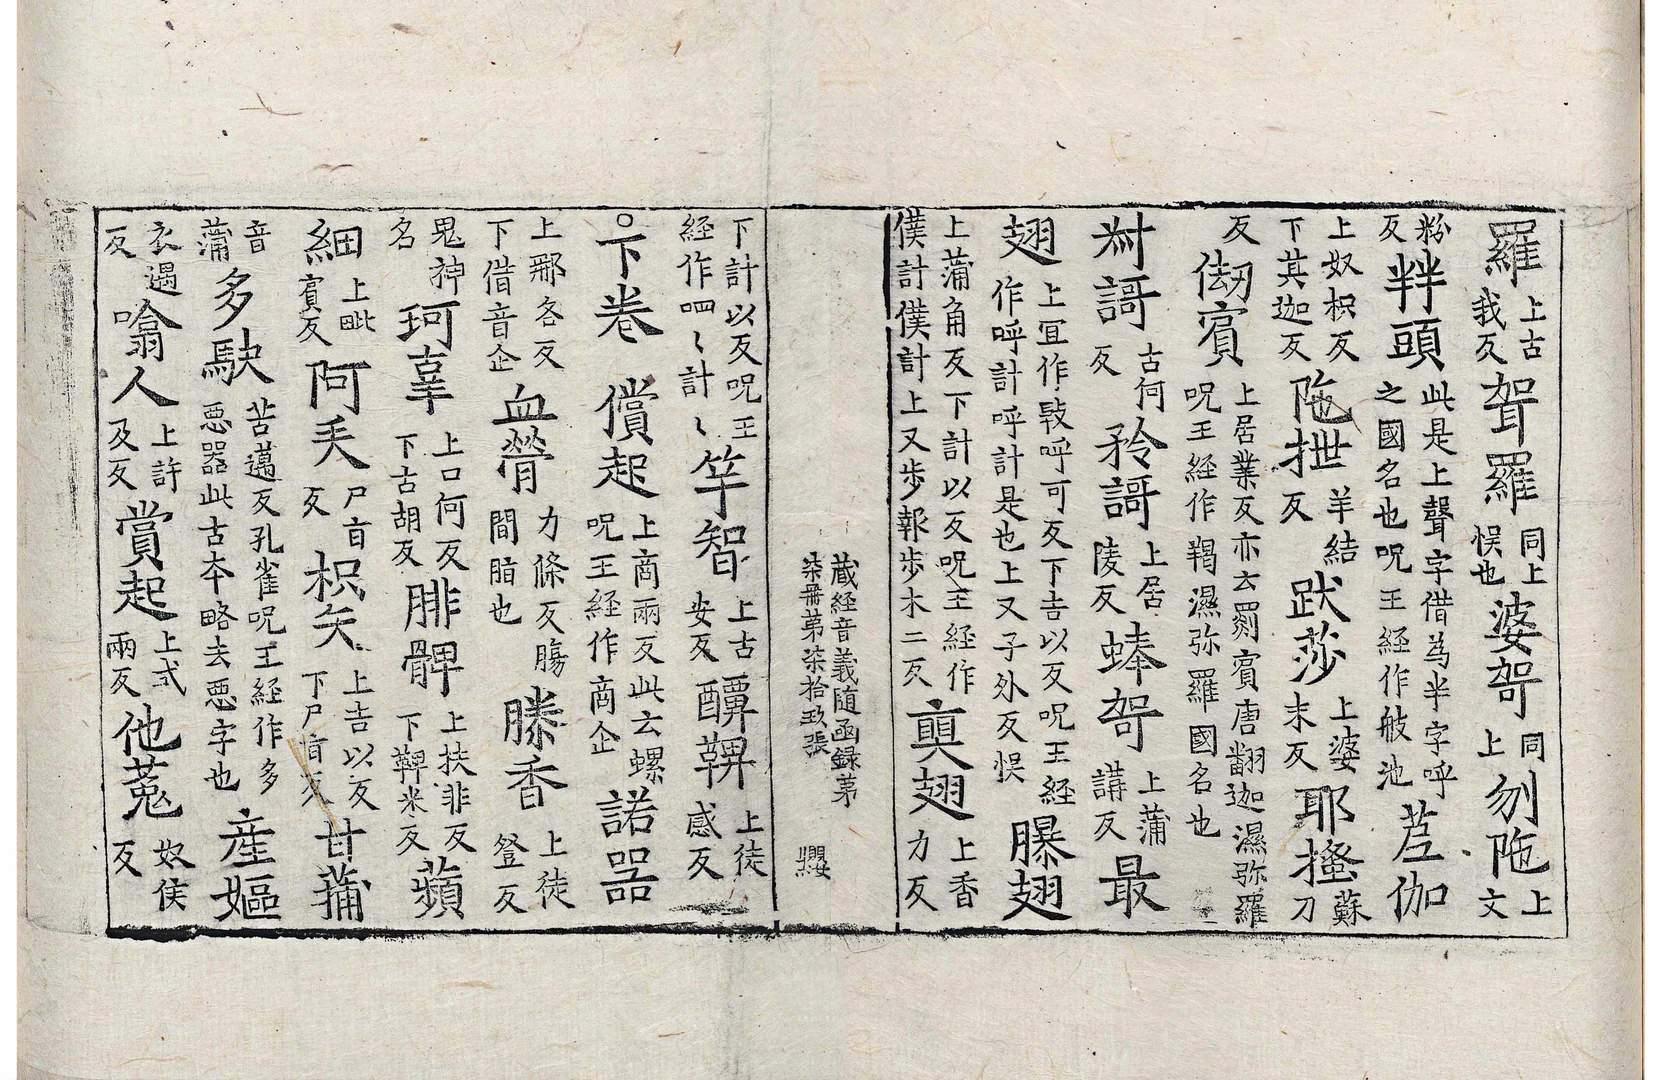 羅上古我反哿羅同上悮也婆哿同上刎陁上文
粉反牉頭此是上聲字借為半字呼之國名也呪王經作舣池苙伽
上奴枳反下其迦反陁抴羊結反䟦莎上婆末反耶搔蘇刀
反㓺賓上居業反亦云罽賓唐翻迦濕弥羅呪王經作羯濕弥羅國名也
謌古何反矜謌上居陵反蜯哿上蒲講反最
翅上冝作㩻呼可反下吉以反呪王經作呼計呼計是也上又子外反悮曝翅
上蒲角反下計以反呪王經作僕計僕計上又步報步木二反㒹翅上香力反
藏經音義随函録苐柒冊苐柒拾玖張 纓
下計以反呪王經作㗲〻計〻竿智上古安反䤗鞞上徒感反
○下卷 償起上商兩反此云螺呪王經作商企諾㗊
上郍各反下借音企血膋力條反膓間脂也縢香上徒登反
鬼神名珂辜上口何反下古胡反腓髀上扶非反下鞞米反蘋
細上毗賔反阿𡗗尸盲反枳矢上吉以反下尸盲反甘蒱
音蒲多駃苦邁反孔雀呪王經作多惡器此古夲略去惡字也産嫗
衣遇反噏人上許及反賞起上式兩反他㝹奴侯反